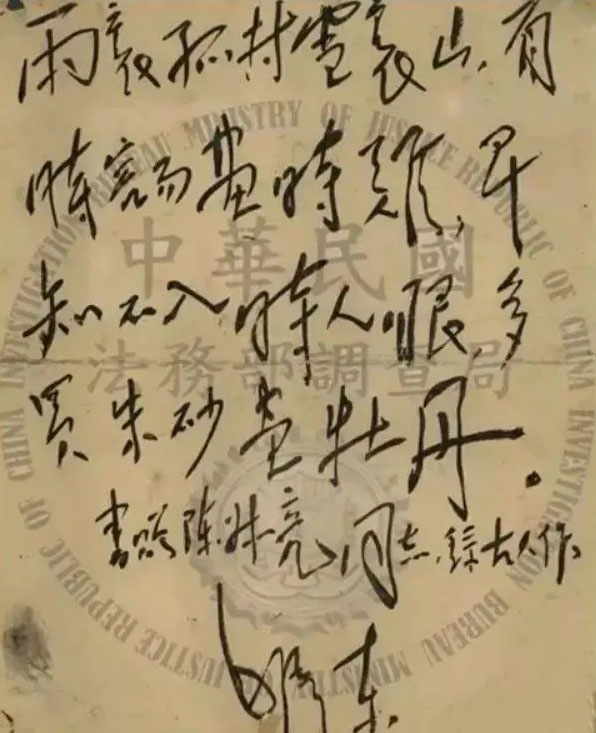 雨裏孤村雪裏山,看
時容易畫時難,早
知不入時人眼,多
買朱砂畫牡丹。
書給陳叔亮同志,錄古人作。
毛澤東
中華民國
法務部調查局
INVESTIGATION BUREAU MINISTRY OF JUSTICE REPUBLIC OF CHINA INVESTIGATION BUREAU MINISTRY OF JUSTICE REPUBLIC OF CHINA